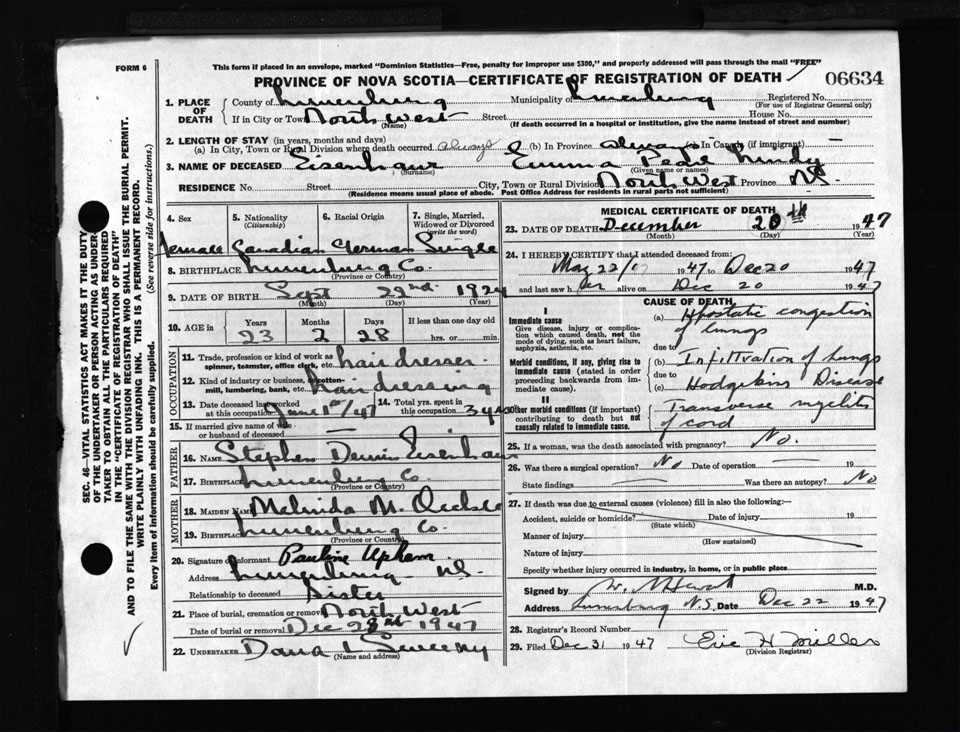 FORM 6
This form if placed in an envelope, marked "Dominion Statistics—Free, penalty for improper use $300," and properly addressed will pass through the mail "FREE"
PROVINCE OF NOVA SCOTIA—CERTIFICATE OF REGISTRATION OF DEATH 06634
1. PLACE OF DEATH County of Lunenburg Municipality of Lunenburg Registered No.
(For use of Registrar General only)
If in City or Town North West Street House No.
(Name) (If death occurred in a hospital or institution, give the name instead of street and number)
2. LENGTH OF STAY (in years, months and days)
(a) In City, Town or Rural Division where death occurred always (b) In Province always (c) In Canada (if immigrant) —
3. NAME OF DECEASED Eisenhaur Emma Pearl
(Surname) (Given name or names)
RESIDENCE No. Street City, Town or Rural Division North West Province N.S.
(Residence means usual place of abode. Post Office Address for residents in rural parts not sufficient)
SEC. 46—VITAL STATISTICS ACT MAKES IT THE DUTY
OF THE UNDERTAKER OR PERSON ACTING AS UNDER-
TAKER TO OBTAIN ALL THE PARTICULARS REQUIRED
IN THE "CERTIFICATE OF REGISTRATION OF DEATH"
AND TO FILE THE SAME WITH THE DIVISION REGISTRAR WHO SHALL ISSUE THE BURIAL PERMIT.
WRITE PLAINLY WITH UNFADING INK. THIS IS A PERMANENT RECORD.
Every item of Information should be carefully supplied. (See reverse side for instructions.)
4. Sex 5. Nationality (Citizenship) 6. Racial Origin 7. Single, Married, Widowed or Divorced (write the word)
Female Canadian German Single
8. BIRTHPLACE Lunenburg Co.
(Province or Country)
9. DATE OF BIRTH Sept 22nd 1924
(Month) (Day) (Year)
10. AGE in Years Months Days If less than one day old
23 2 28 hrs. or min.
OCCUPATION
11. Trade, profession or kind of work as spinner, teamster, office clerk, etc. hairdresser
12. Kind of industry or business, as cotton-mill, lumbering, bank, etc. hairdressing
13. Date deceased last worked at this occupation June 1st/47 14. Total yrs. spent in this occupation 3 yrs
15. If married give name of wife or husband of deceased
FATHER
16. NAME Stephen Eisenhaur
17. BIRTHPLACE Lunenburg Co.
(Province or Country)
MOTHER
18. MAIDEN NAME Melinda M.
19. BIRTHPLACE Lunenburg Co.
(Province or Country)
20. Signature of informant Pauline Upham
Address Lunenburg N.S.
Relationship to deceased Sister
21. Place of burial, cremation or removal North West
Date of burial or removal Dec 1947
22. UNDERTAKER Dana L Sweeny
(Name and address)
MEDICAL CERTIFICATE OF DEATH
23. DATE OF DEATH December 20th 1947
(Month) (Day) (Year)
24. I HEREBY CERTIFY that I attended deceased from:
May 22 1947 to Dec 20 1947
and last saw her alive on Dec 20 1947
CAUSE OF DEATH
I
Immediate cause
Give disease, injury or complication which caused death, not the mode of dying, such as heart failure, asphyxia, asthenia, etc.
(a) Hypostatic congestion of lungs
due to
Morbid conditions, if any, giving rise to immediate cause (stated in order proceeding backwards from immediate cause).
(b) Infiltration of Lungs
due to
(c) Hodgkins Disease
II
Other morbid conditions (if important) contributing to death but not causally related to immediate cause.
Transverse myelitis of cord
25. If a woman, was the death associated with pregnancy? No.
26. Was there a surgical operation? No Date of operation 19
State findings Was there an autopsy? No
27. If death was due to external causes (violence) fill in also the following:—
Accident, suicide or homicide? Date of injury 19
(State which)
Manner of injury
(How sustained)
Nature of injury
Specify whether injury occurred in industry, in home, or in public place
Signed by M.D.
Address Lunenburg N.S. Date Dec 22 1947
28. Registrar's Record Number
29. Filed Dec 31 1947 Eric H Miller
(Division Registrar)